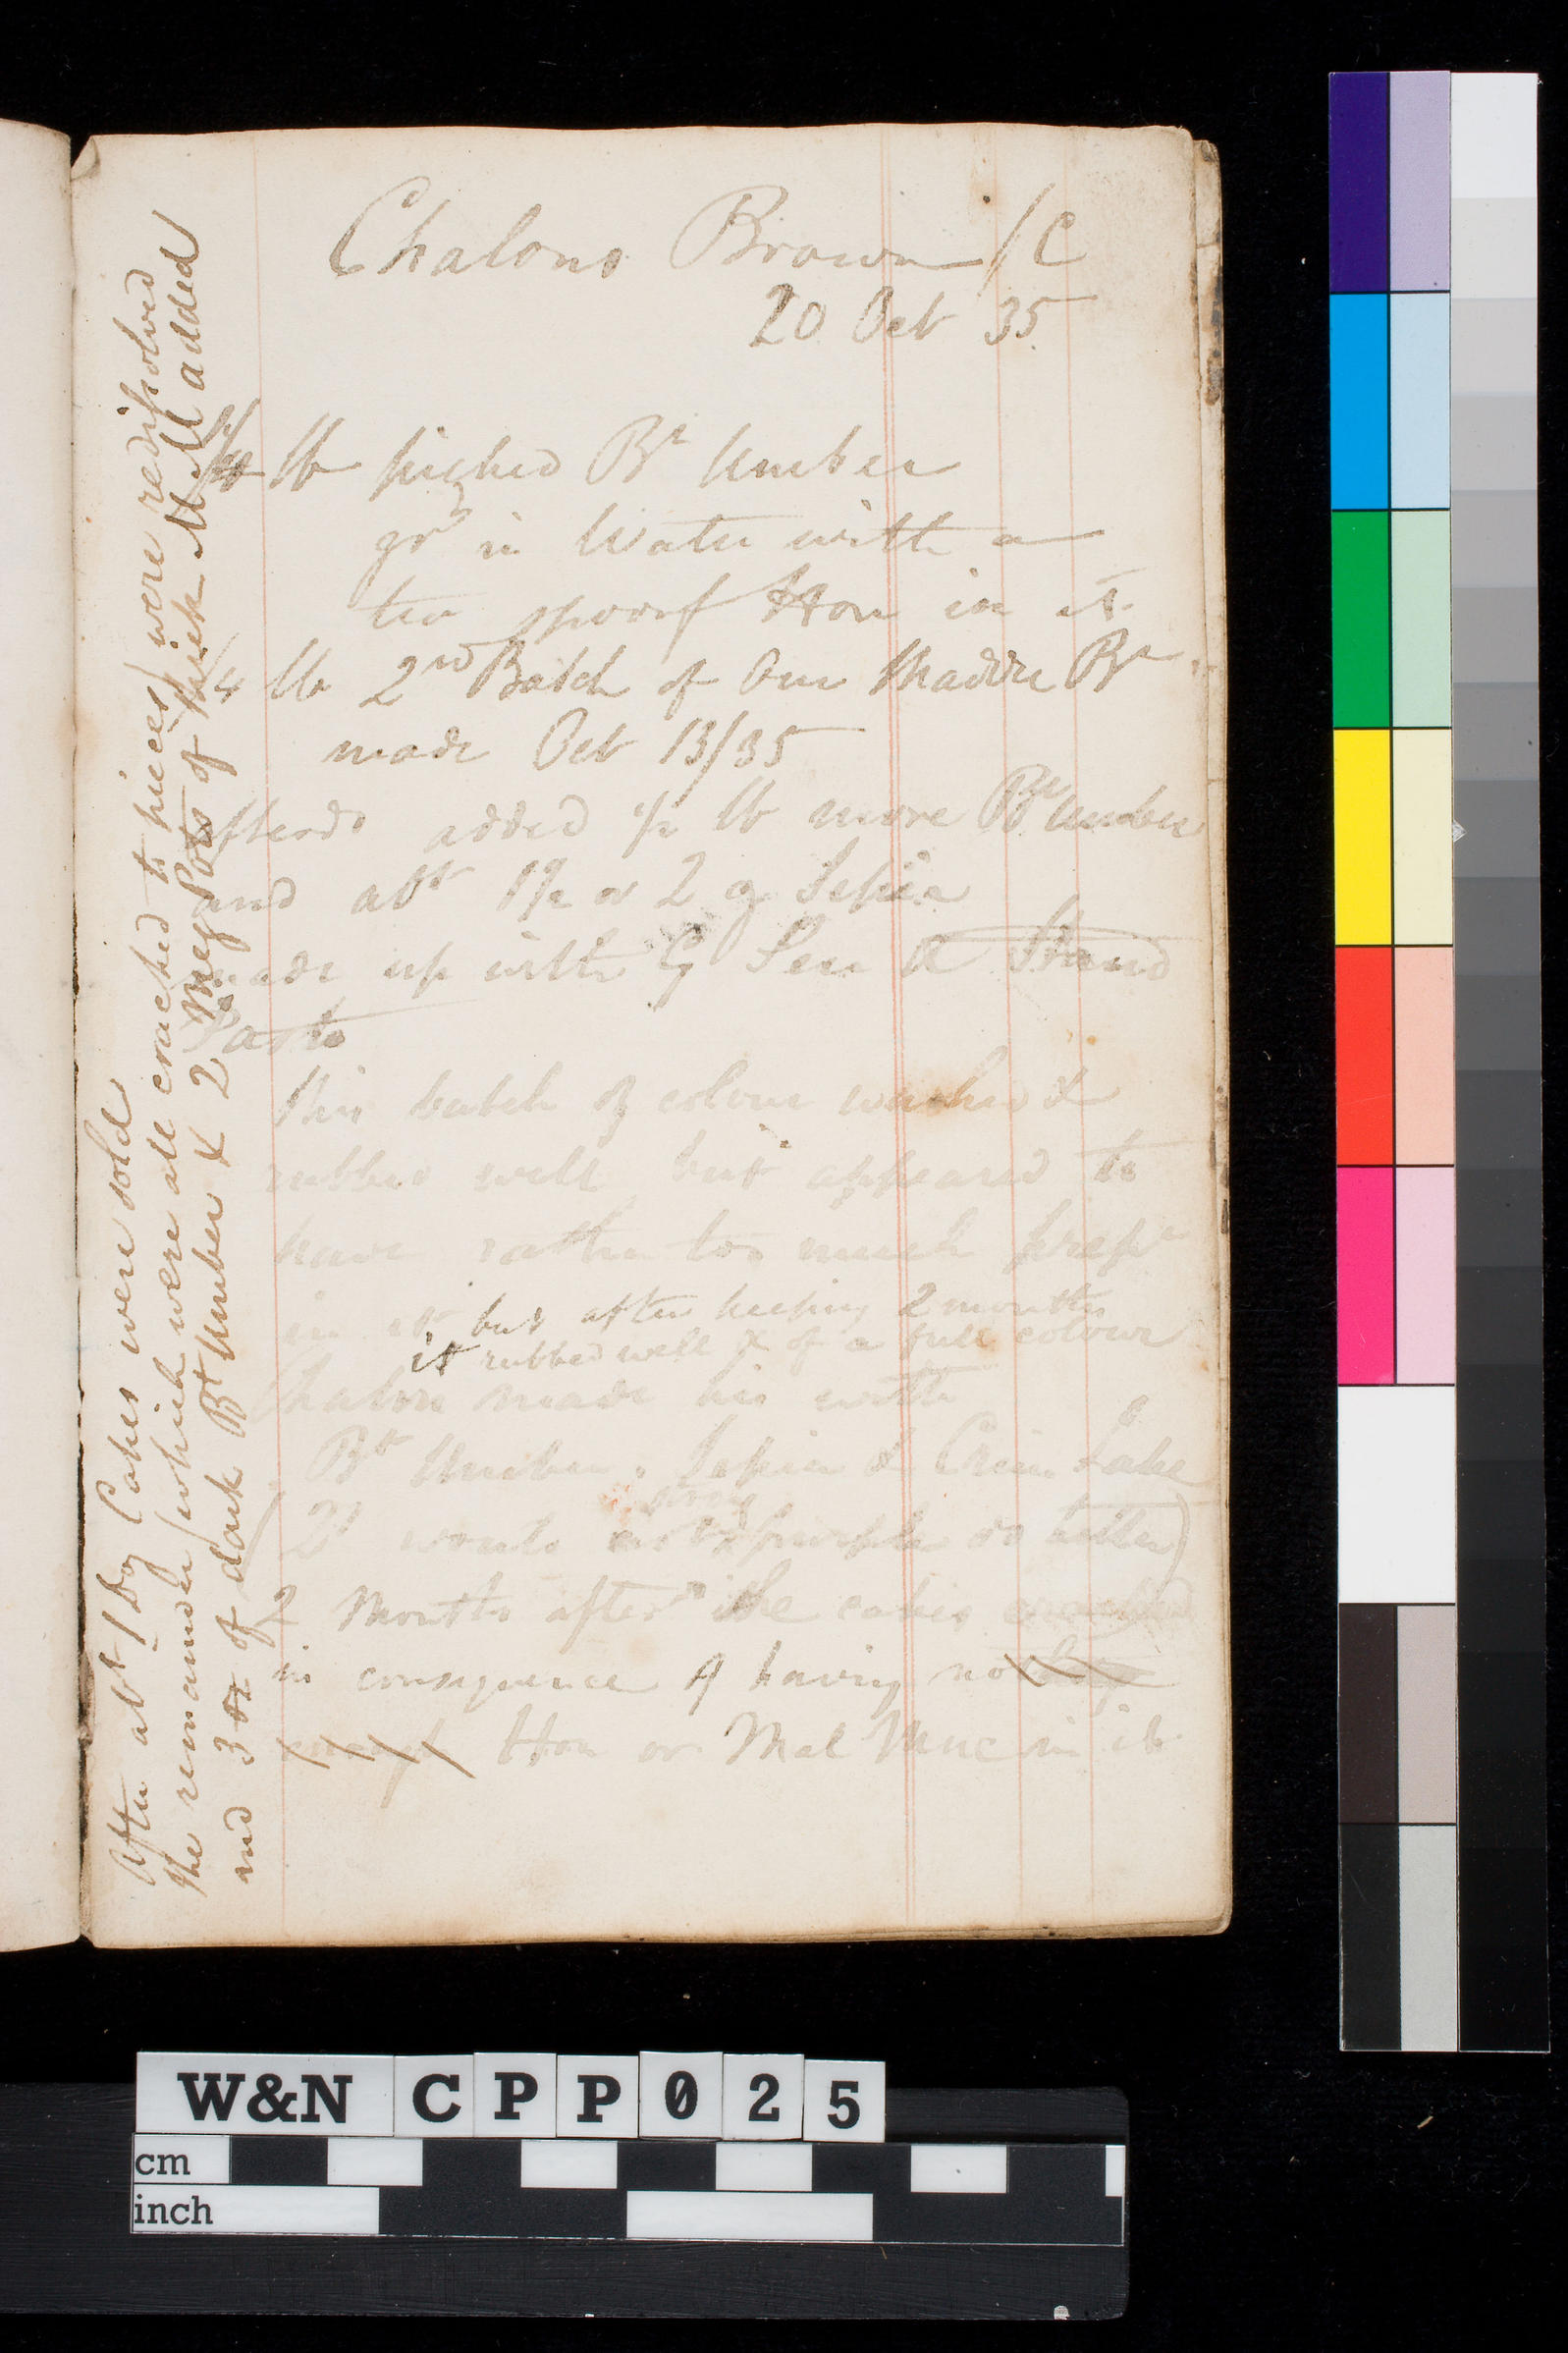 Chalons Brown /C
20 Oct 35
lb picked Bt Umber
grd in Water with a
tea spoonf Hon in it
1/4 lb 2nd Batch of Our Madder Br
made Oct 13/35
afterds added 1/2 lb more Bt Umber
and abt 1 1/2 or 2 oz Sepia
made up with G Sen & Stand
Paste
this batch of colour washed &
rubbed well but appeared to
have rather too much prepn
in it but after keeping 2 months
it rubbed well & of a full colour
Chalon made his with
Bt Umber, Sepia & Crim Lake
wants purple
2 Months after the cakes cracked
in consequence of having not
enough Hon or Mal Muc in it
After abt 1 Doz Cakes were sold
the remainder (which were all cracked to pieces) were redissolved
and 3 oz of dark Bt Umber & 2 Meg Pots of thick M M added
W&N CPP025
cm
inch